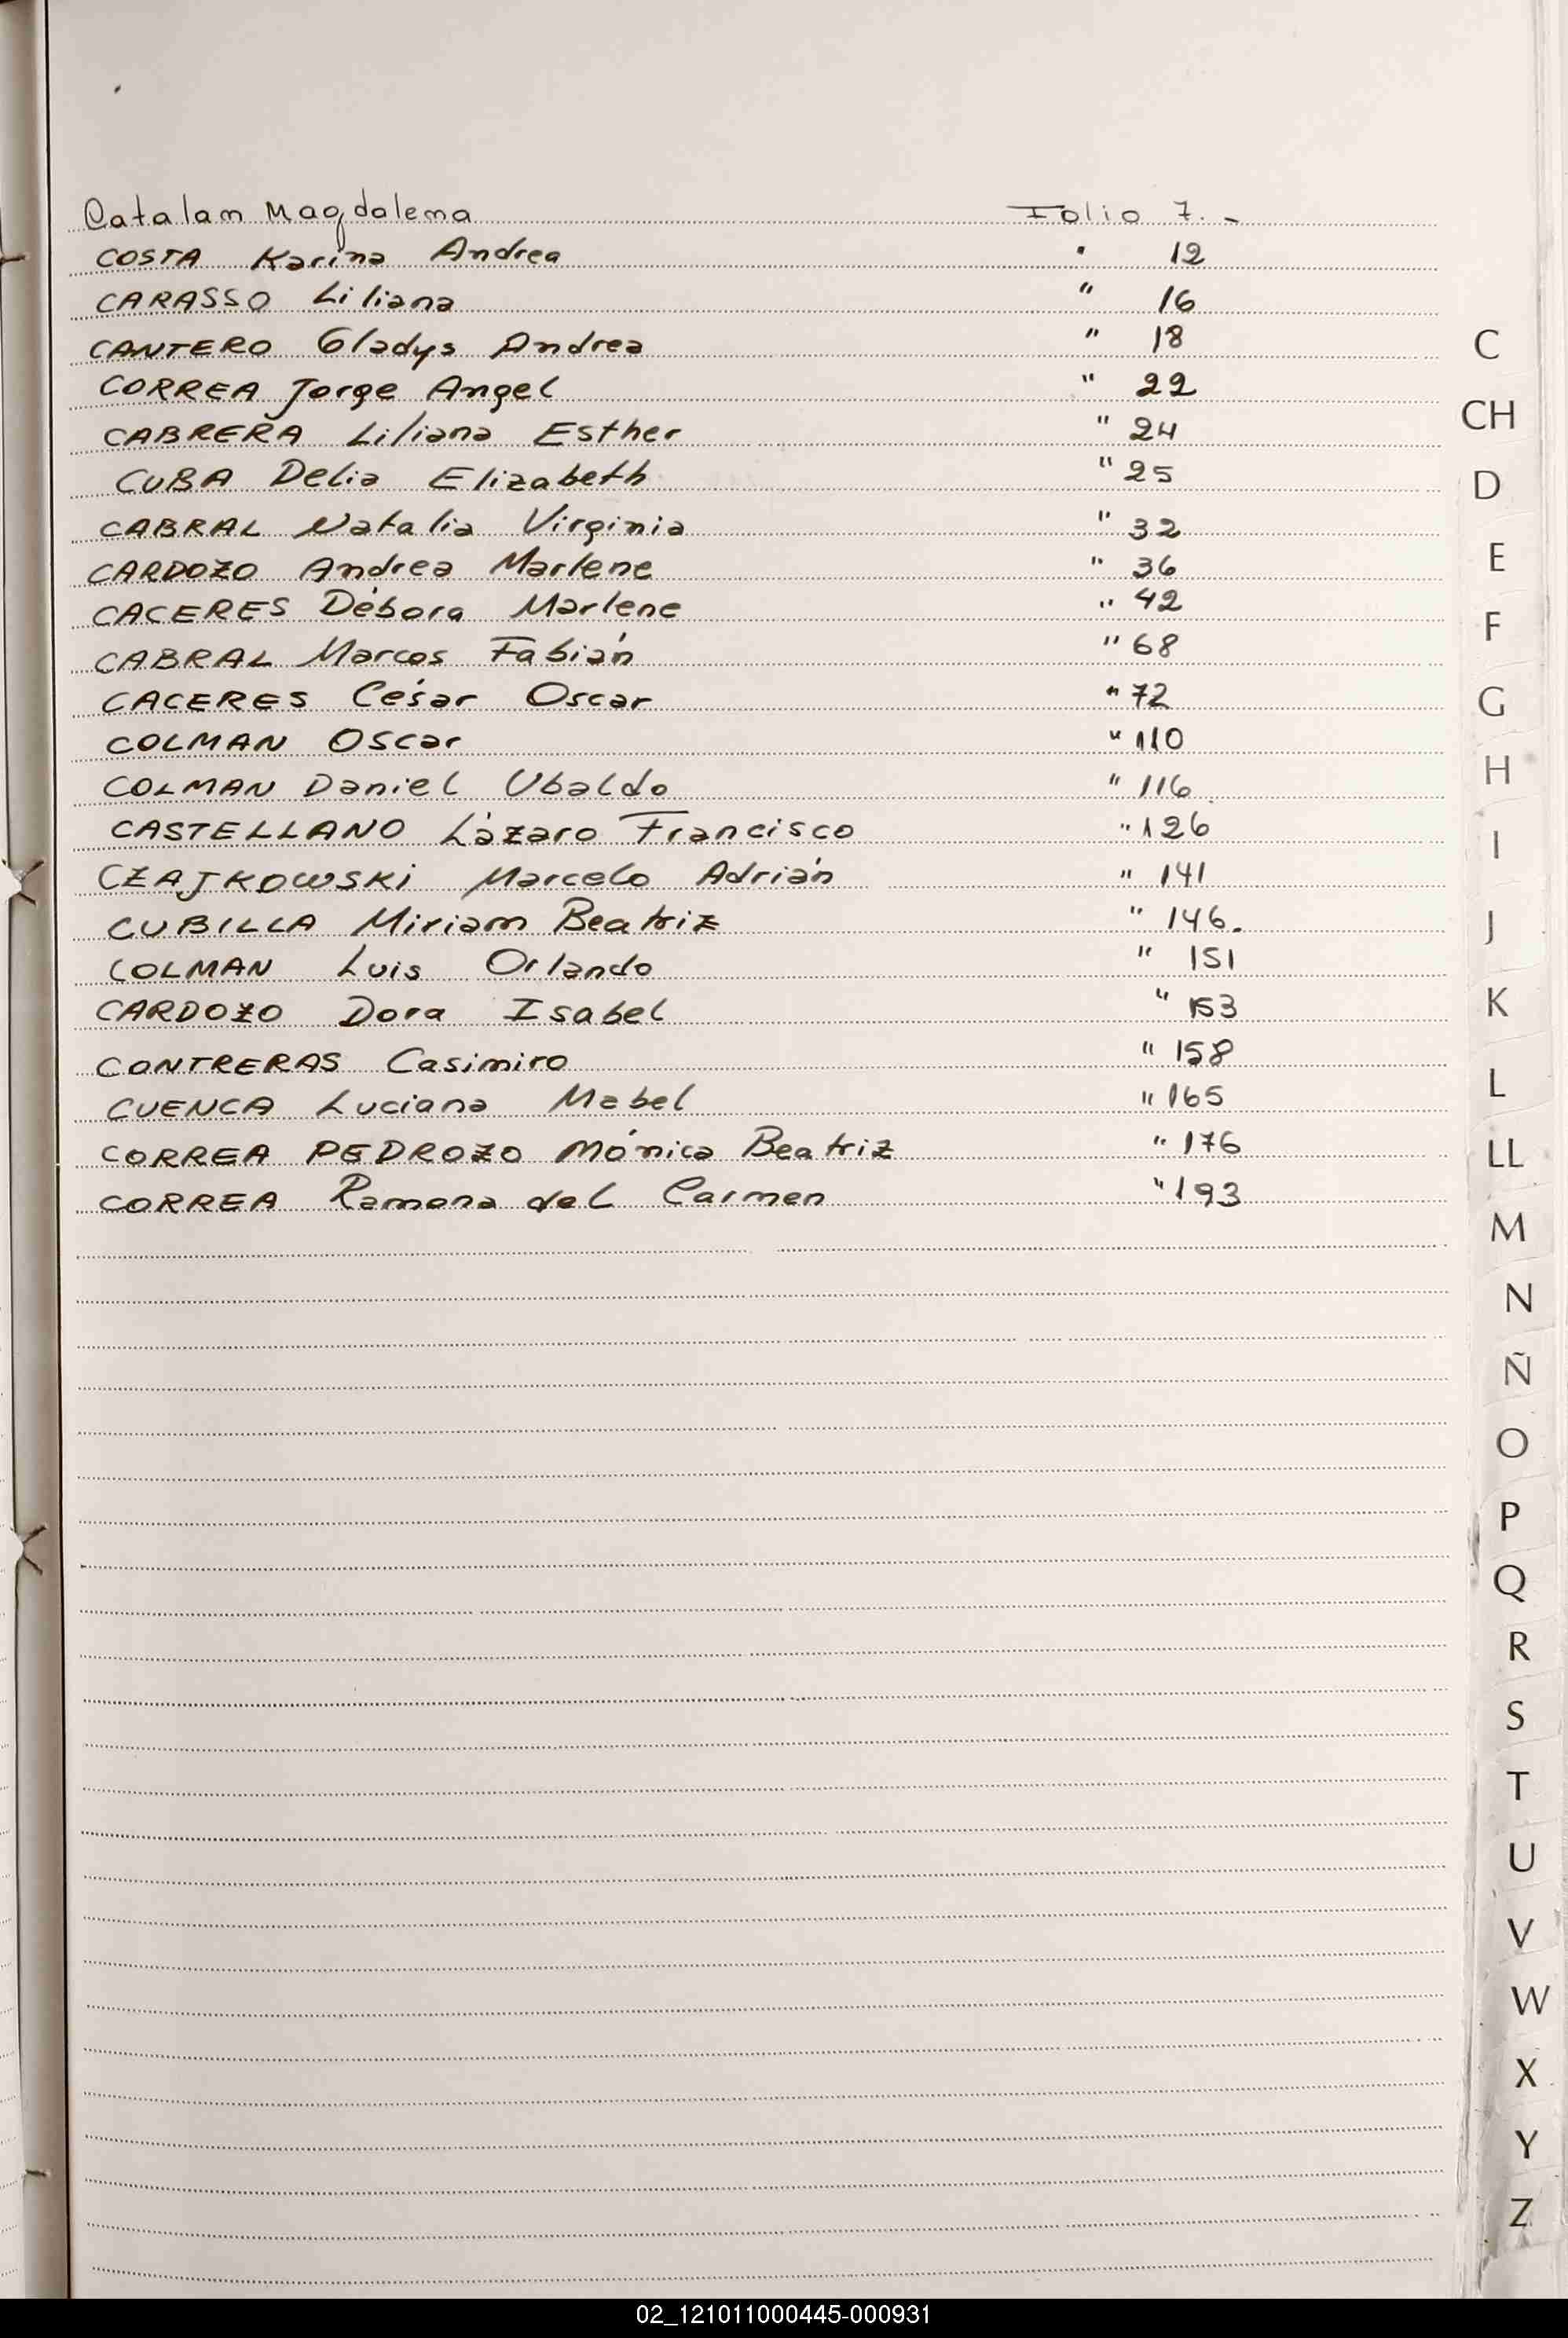 Catalan Magdalena Folio 7.-
COSTA Karina Andrea " 12
CARASSO Liliana " 16
CANTERO Gladys Andrea " 18
CORREA Jorge Angel " 22
CABRERA Liliana Esther " 24
CUBA Delia Elizabeth " 25
CABRAL Natalia Virginia " 32
CARDOZO Andrea Marlene " 36
CACERES Débora Marlene " 42
CABRAL Marcos Fabián " 68
CACERES César Oscar " 72
COLMAN Oscar " 110
COLMAN Daniel Ubaldo " 116
CASTELLANO Lázaro Francisco " 126
CZAJKOWSKi Marcelo Adrián " 141
CUBILLA Miriam Beatriz " 146.
COLMAN Luis Orlando " 151
CARDOZO Dora Isabel " 153
CONTRERAS Casimiro " 158
CUENCA Luciana Mabel " 165
CORREA PEDROZO Mónica Beatriz " 176
CORREA Ramona del Carmen " 193
C
CH
D
E
F
G
H
I
J
K
L
LL
M
N
Ñ
O
P
Q
R
S
T
U
V
W
X
Y
Z
02_121011000445-000931